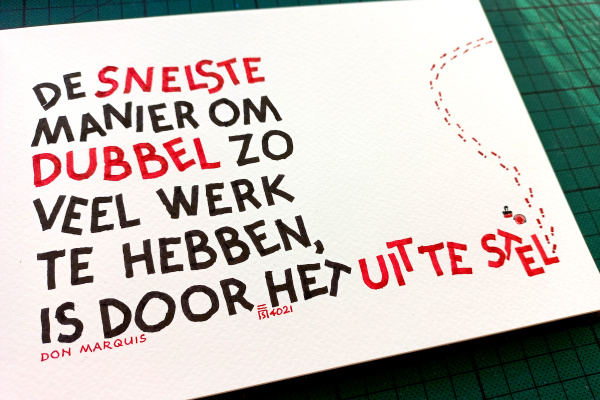 DE SNELSTE
MANIER OM
DUBBEL ZO
VEEL WERK
TE HEBBEN,
IS DOOR HET UIT TE STEL
DON MARQUIS
4021